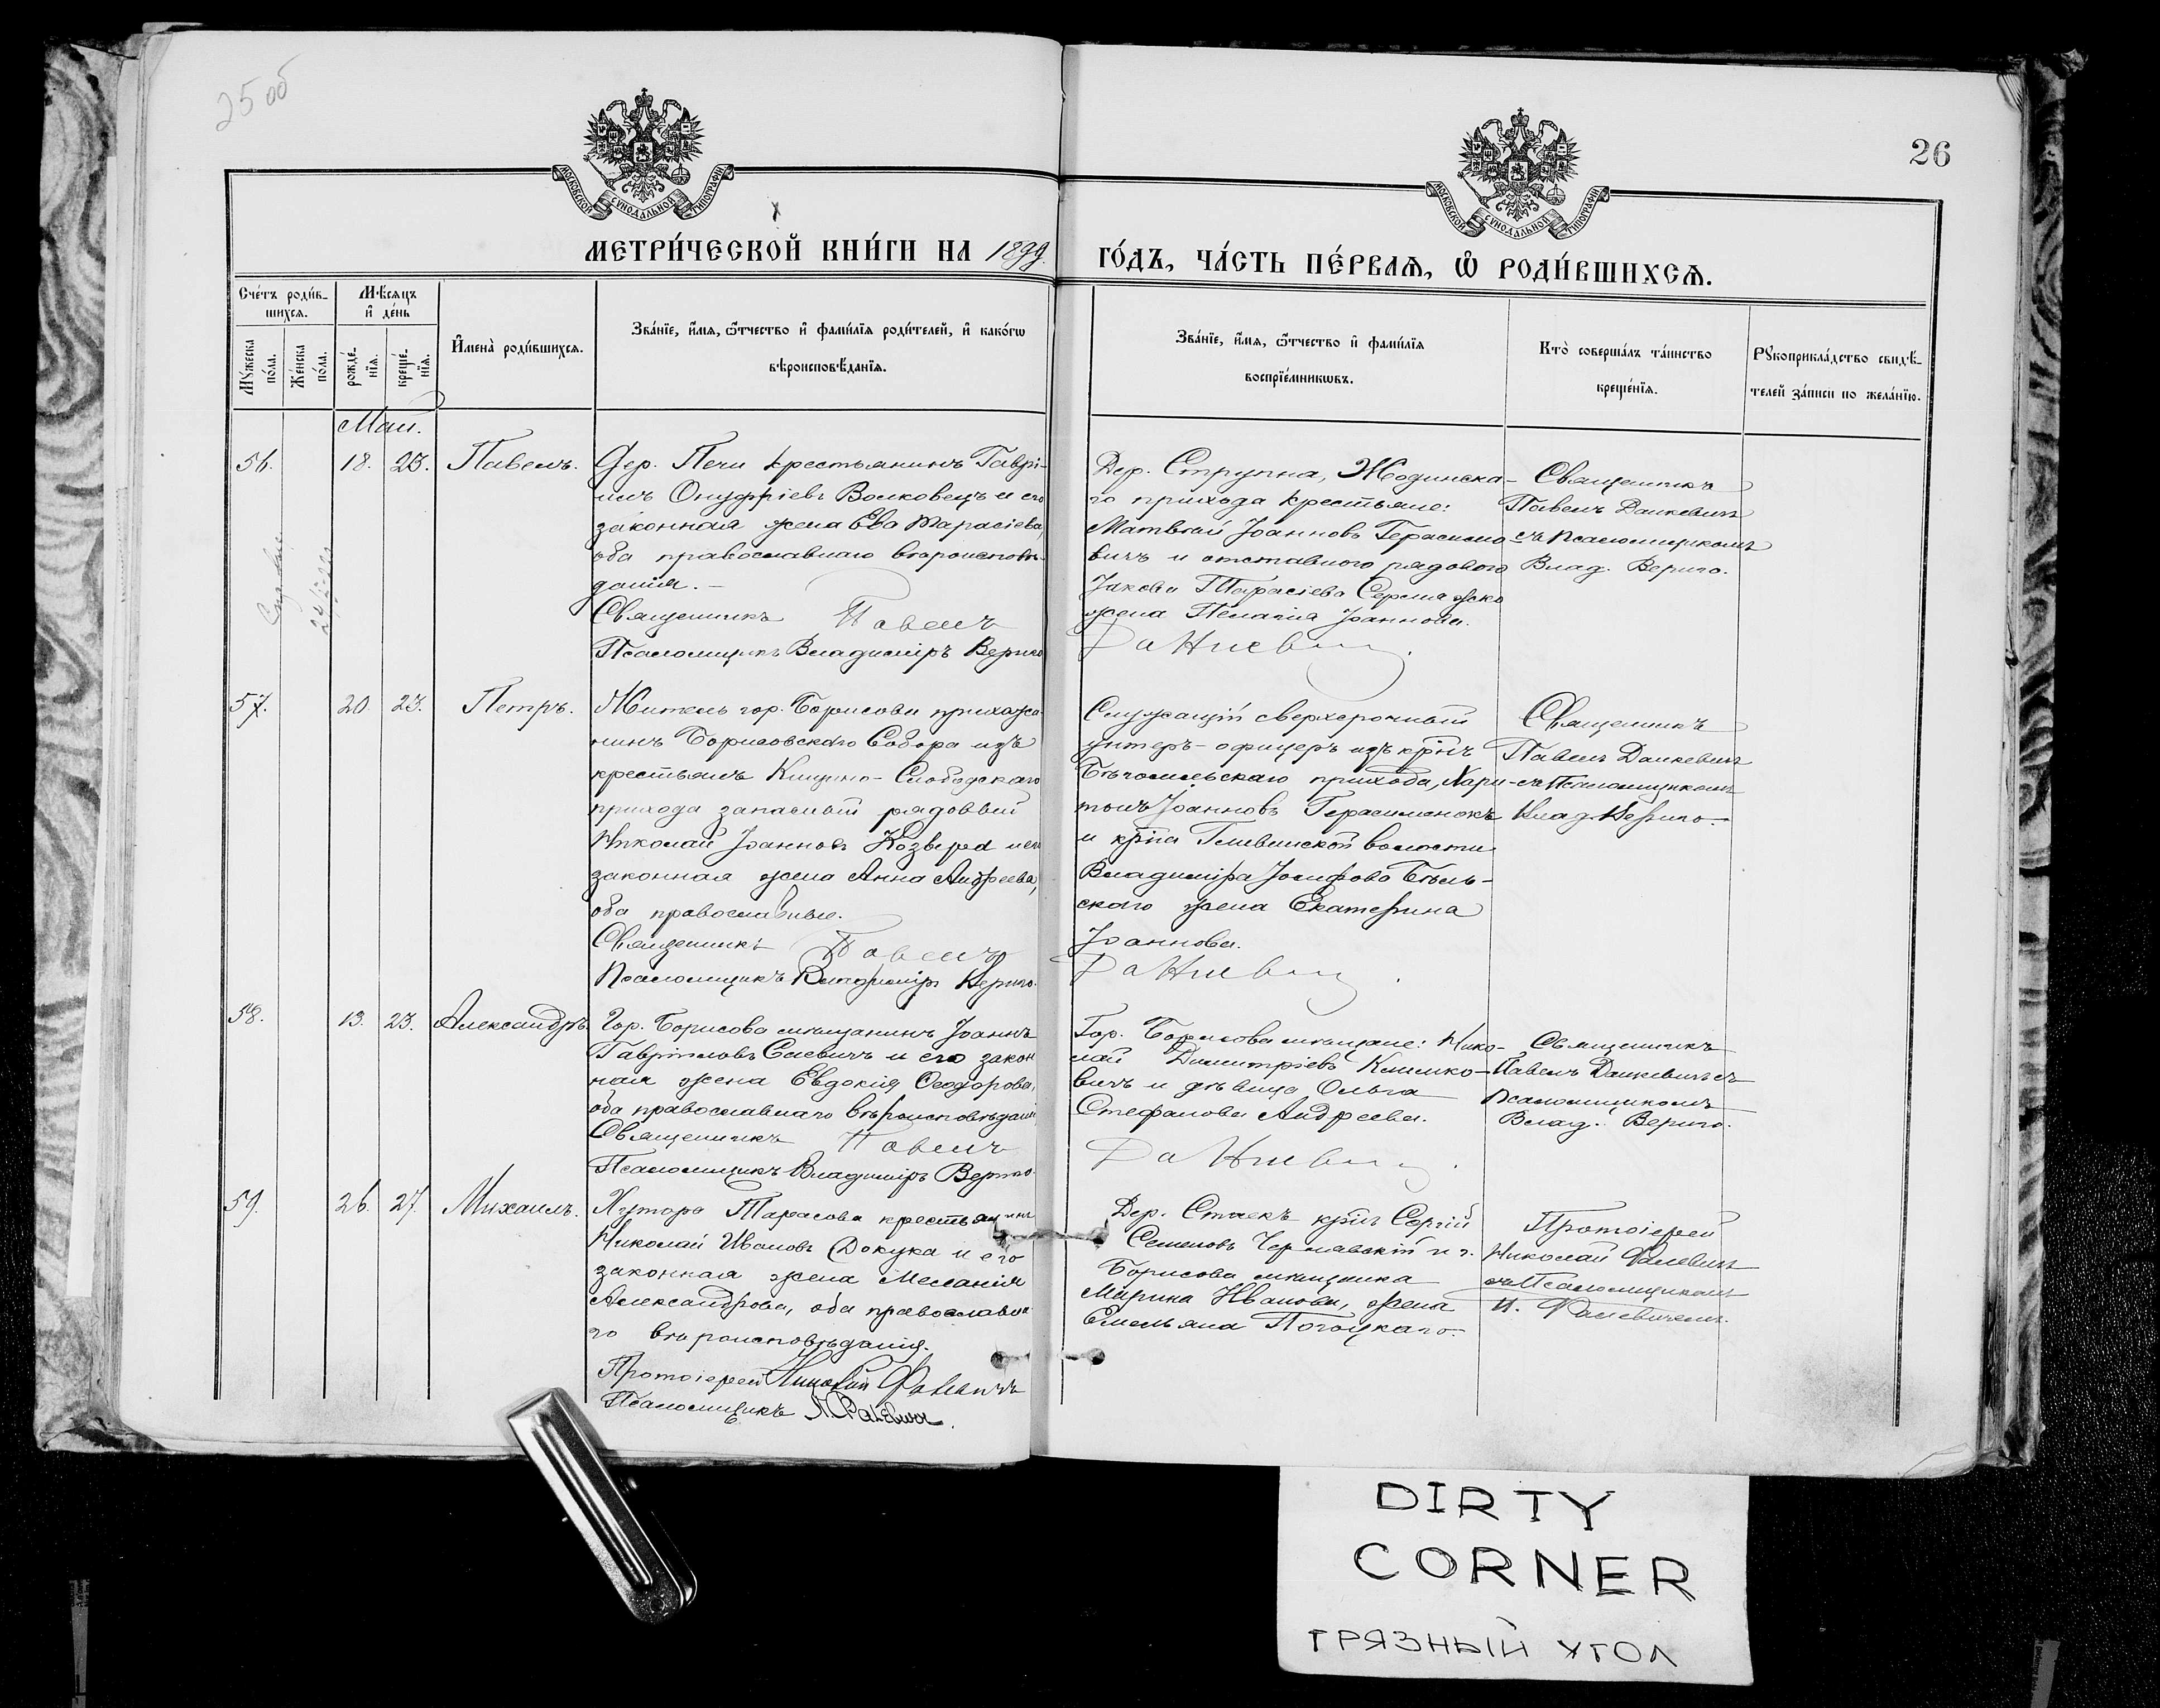 25 об
26
МОСКОВСКОЙ СѴНОДАЛЬНОЙ ТИПОГРАФІИ
МОСКОВСКОЙ СѴНОДАЛЬНОЙ ТИПОГРАФІИ
МЕТРИ́ЧЕСКОЙ КНИ́ГИ НА 1899
ГО́ДЪ, ЧА́СТЬ ПЕ́РВАѦ, Ѽ РОДИ́ВШИХСѦ.
Сче́тъ роди́в-
шихсѧ.
Мꙋ́жеска
по́ла.
Же́нска
по́ла.
Мѣ́сѧцъ
и҆ де́нь
рожде́-
нїѧ.
креще́-
нїѧ.
И҆мена̀ роди́вшихсѧ.
Зва́нїе, и҆́мѧ, ѻ҆́тчество и҆ фами́лїѧ роди́телей, и҆ како́гѡ
вѣроисповѣ́данїѧ.
Зва́нїе, и҆́мѧ, ѻ҆́тчество и҆ фами́лїѧ
воспрїе́мникѡвъ.
Кто̀ соверша́лъ та́инство
креще́нїѧ.
Рꙋкоприкла́дство свидѣ́-
телей за́писи по жела́нїю.
Май.
56.
18. 23.
Павелъ.
Дер. Печи крестьянинъ Гаврі-
илъ Онуфріевъ Волковецъ и его
законная жена Ева Тарасіева,
оба православнаго вѣроиспов-
данія. –
Священникъ Павелъ
Псаломщикъ Владиміръ Вериго
Дер. Струпна, Жодинска-
го прихода крестьяне:
Матвѣй Іоанновъ Герасимо
вичъ и отставного рядового
Іакова Тарасіева Сермяжко
жена Пелагія Іоаннова.
Данкевичъ.
Священникъ
Павелъ Данкевичъ
съ псаломщикомъ
Влад. Вериго.
57.
20. 23.
Петръ.
Житель гор. Борисова прихожа
нинъ Борисовскаго Собора изъ
крестьянъ Кищино-Слободскаго
прихода запасный рядовый
Николай Іоанновъ Козыред и его
законная жена Анна Андреева,
оба православные.
Священникъ Павелъ
Псаломщикъ Владиміръ Вериго.
Служащій сверхсрочный
унтеръ-офицеръ изъ кр-нъ
Бѣгомльскаго прихода, Хари-
тонъ Іоанновъ Герасименокъ
и кр-на Гливинской волости
Владиміра Іосифова Бѣль-
скаго жена Екатерина
Іоаннова.
Данкевичъ.
Священникъ
Павелъ Данкевичъ
съ псаломщикомъ
Влад. Вериго.
58.
13. 23.
Александръ.
Гор. Борисова мѣщанинъ Іоаннъ
Гавріиловъ Саевичъ и его закон
ная жена Евдокія Ѳеодорова,
оба православнаго вѣроисповѣданія
Священникъ Павелъ
Псаломщикъ Владиміръ Вериго
Гор. Борисова мѣщане: Нико-
лай Димитріевъ Климко-
вичъ и дѣвица Ольга
Стефанова Андреева.
Данкевичъ.
Священникъ
Павелъ Данкевичъ съ
Псаломщикомъ
Влад. Вериго.
59.
26. 27.
Михаилъ.
Хутора Тарасова крестьянинъ
Николай Ивановъ Докука и его
законная жена Меланія
Александрова, оба православна
го вѣроисповѣданія.
Протоіерей Николай Фалевичъ
Псаломщикъ Фалевичъ.
Дер. Стаекъ кр-нъ Сергій
Семеновъ Чернавскій и г.
Борисова мѣщанка
Марина Иванова, жена
Емельяна Потоцкаго.
Протоіерей
Николай Фалевичъ
съ Псаломщикомъ
Н. Фалевичемъ.
DIRTY
CORNER
ГРЯЗНЫЙ УГОЛ